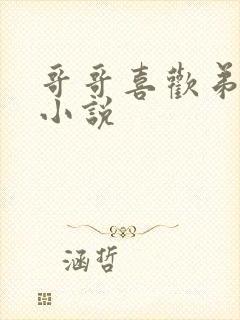 哥哥喜歡弟
小說
涵哲